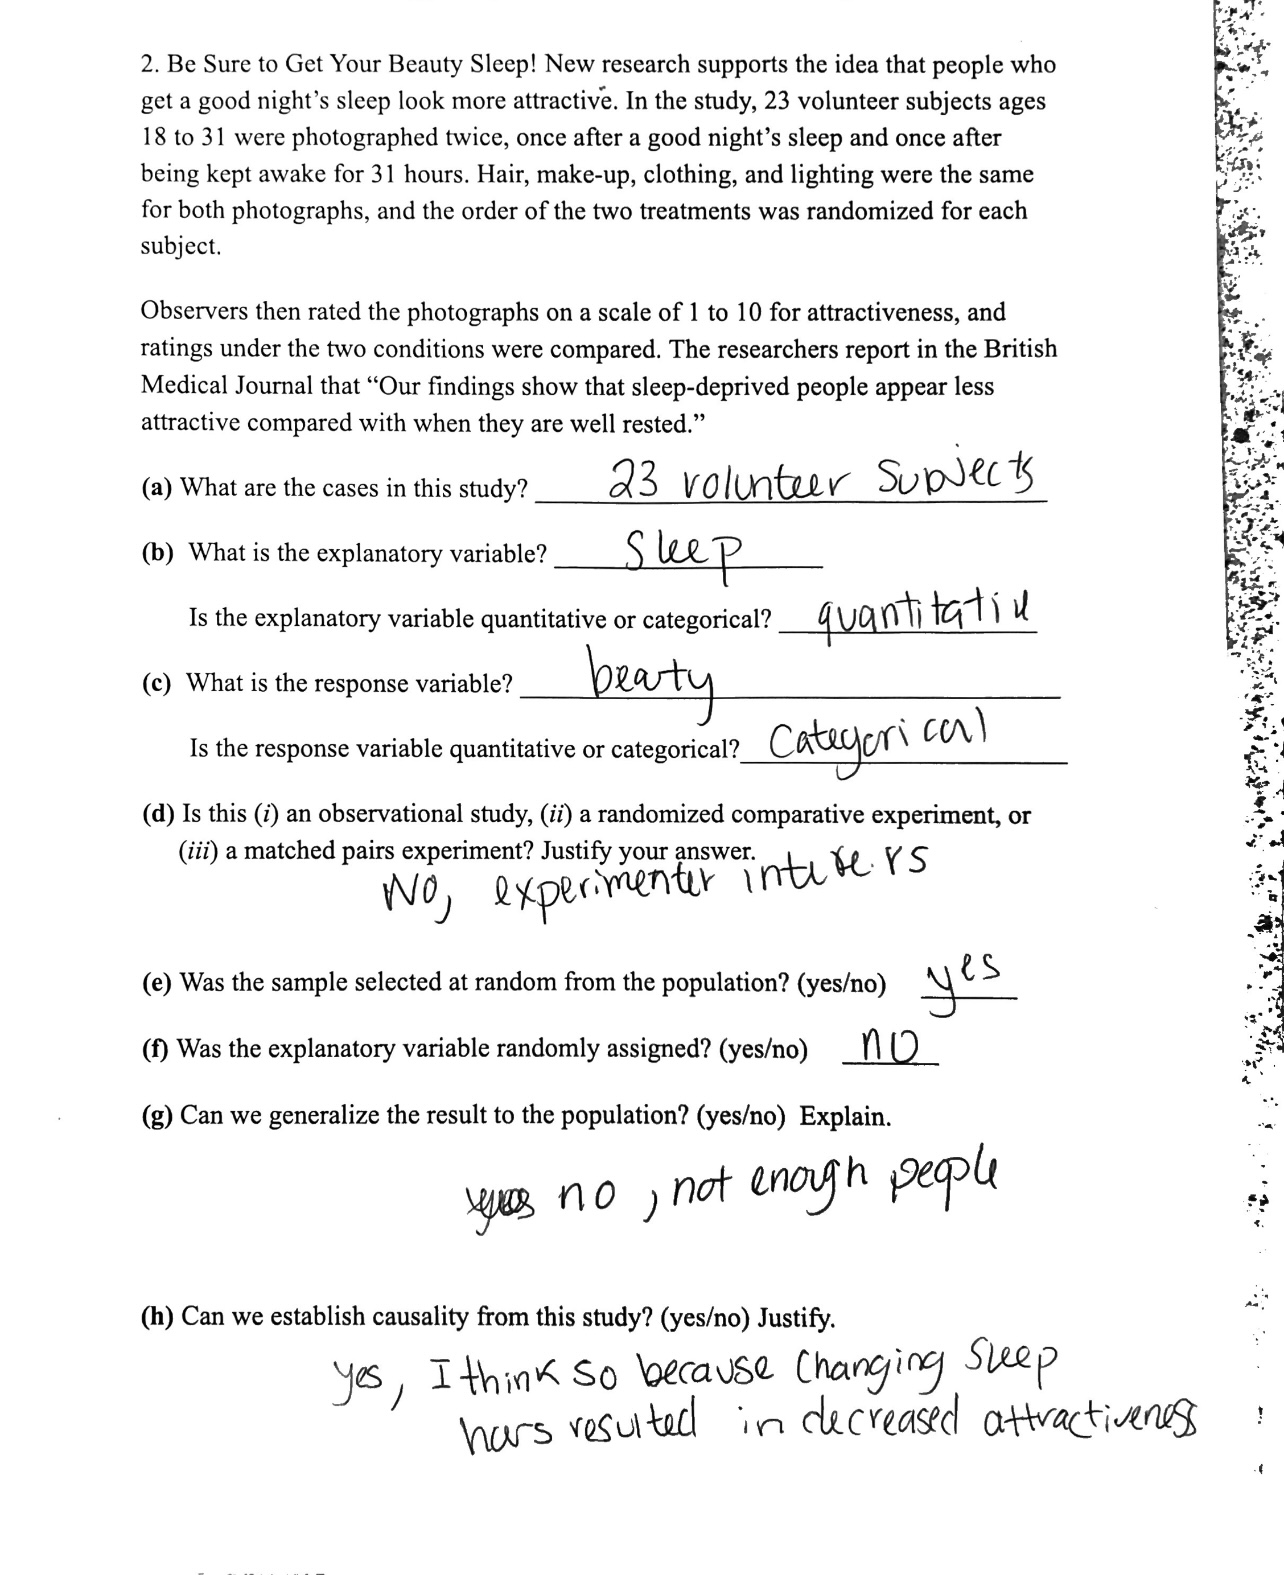 2. Be Sure to Get Your Beauty Sleep! New research supports the idea that people who
get a good night's sleep look more attractive. In the study, 23 volunteer subjects ages
18 to 31 were photographed twice, once after a good night's sleep and once after
being kept awake for 31 hours. Hair, make-up, clothing, and lighting were the same
for both photographs, and the order of the two treatments was randomized for each
subject.
Observers then rated the photographs on a scale of 1 to 10 for attractiveness, and
ratings under the two conditions were compared. The researchers report in the British
Medical Journal that “Our findings show that sleep-deprived people appear less
attractive compared with when they are well rested.”
(a) What are the cases in this study? 23 volunteer subjects
(b) What is the explanatory variable? Sleep
Is the explanatory variable quantitative or categorical? quantitative
(c) What is the response variable? beauty
Is the response variable quantitative or categorical? Categorical
(d) Is this (i) an observational study, (ii) a randomized comparative experiment, or
(iii) a matched pairs experiment? Justify your answer.
No, experimenter
(e) Was the sample selected at random from the population? (yes/no) yes
(f) Was the explanatory variable randomly assigned? (yes/no) no
(g) Can we generalize the result to the population? (yes/no) Explain.
no, not enough people
(h) Can we establish causality from this study? (yes/no) Justify.
yes, I think so because changing sleep
hours resulted in decreased attractiveness